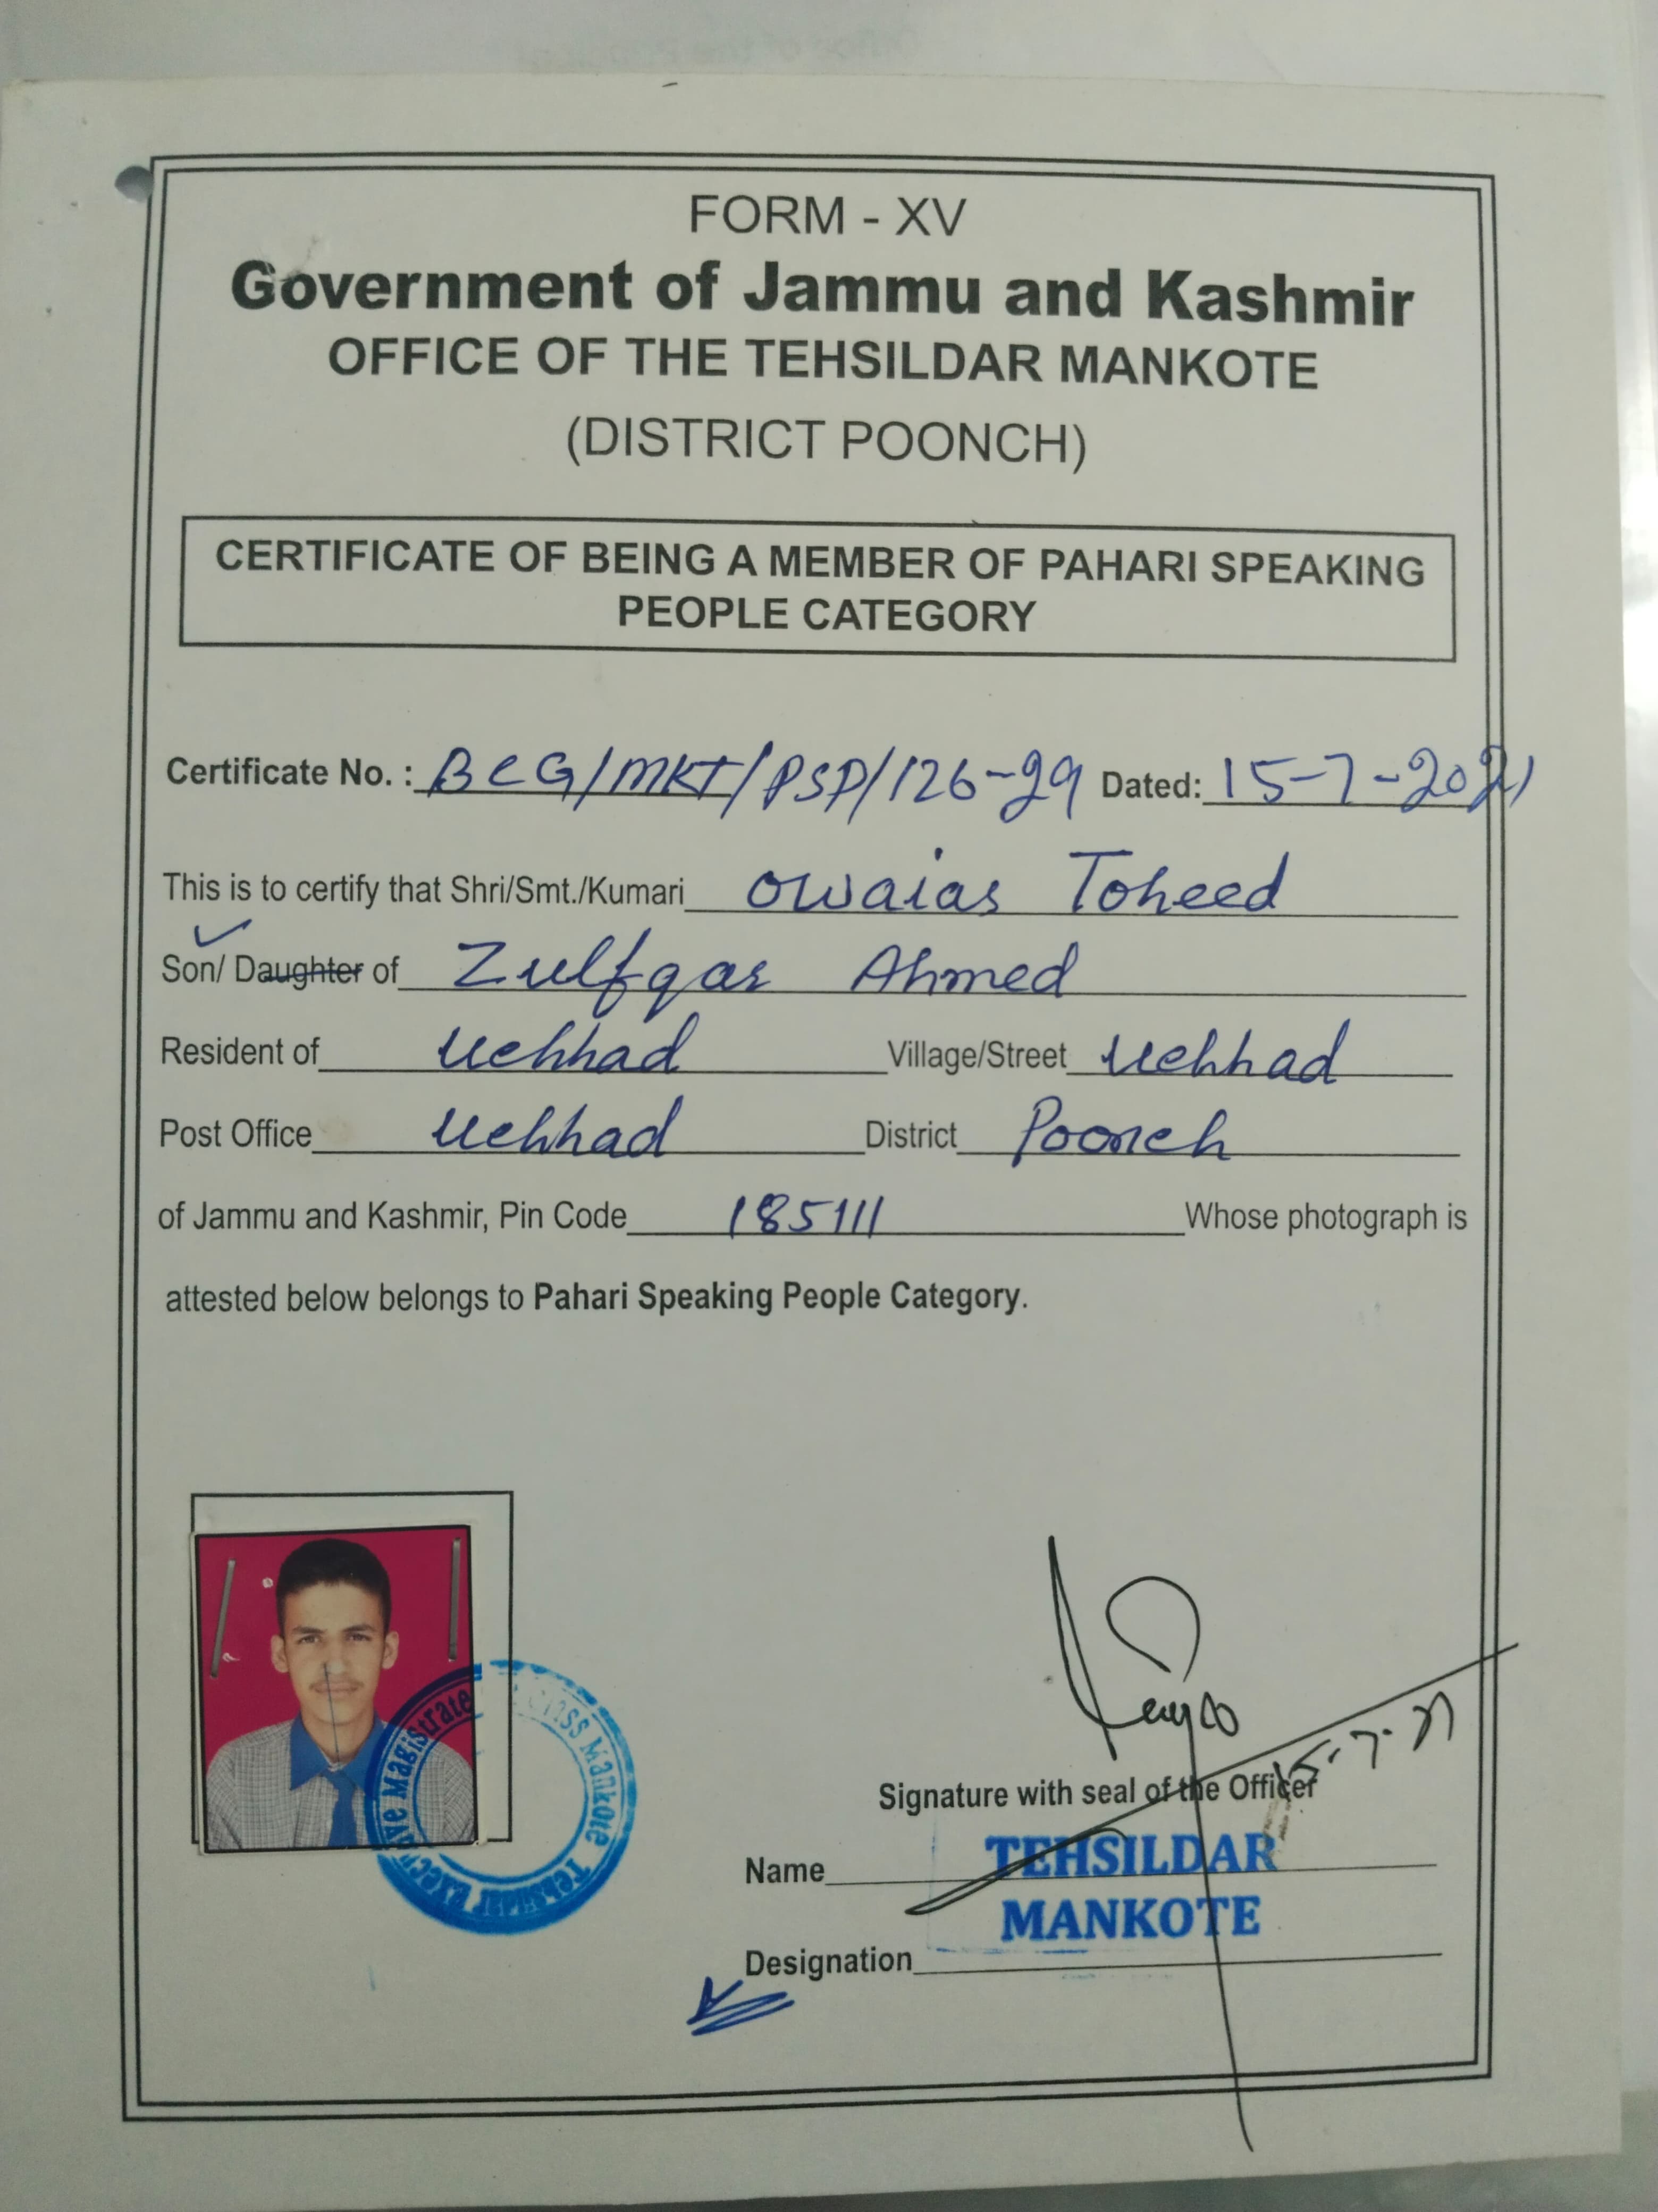 FORM - XV
Government of Jammu and Kashmir
OFFICE OF THE TEHSILDAR MANKOTE
(DISTRICT POONCH)
CERTIFICATE OF BEING A MEMBER OF PAHARI SPEAKING
PEOPLE CATEGORY
Certificate No. : BCG/MKT/PSP/126-29 Dated: 15-7-2021
This is to certify that Shri/Smt./Kumari Owaias Toheed
Son/ Daughter of Zulfqar Ahmed
Resident of Uchhad Village/Street Uchhad
Post Office Uchhad District Poonch
of Jammu and Kashmir, Pin Code 185111 Whose photograph is
attested below belongs to Pahari Speaking People Category.
Executive Magistrate Class Mankote Tehsildar
15-7-21
Signature with seal of the Officer
Name TEHSILDAR
MANKOTE
Designation